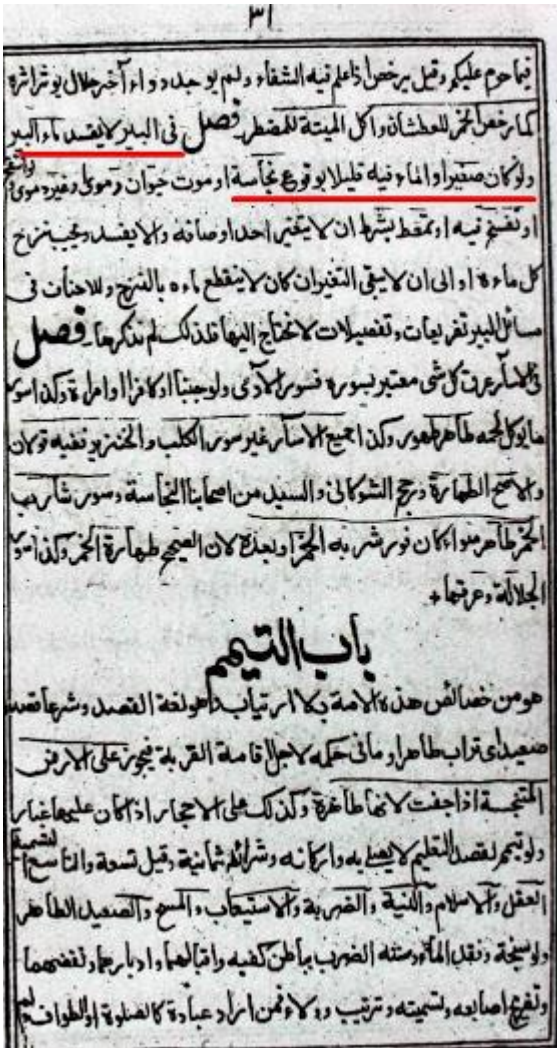 ٣١
فيما حرم عليكم وقيل يرخص اذا علم فيه الشفاء ولم يوجد دواء آخر حلال يؤثر اثره
كما رخص الخمر للعطشان واكل الميتة للمضطر فصل فى البير لا يفسد ماء البير
ولو كان صغيرا والماء فيه قليلا بوقوع نجاسة او موت حيوان دموى وغيره دموى
او تفسخ فيه او تمعط بشرط ان لا يتغير احد اوصافه والا يفسد ويجب نزح
كل ماءه او الى ان لا يبقى التغير ان كان لا ينقطع ماءه بالنزح وللاحناف فى
مسائل البير تفريعات وتفصيلات لا نحتاج اليها فلذلك لم نذكرها فصل
فى الاسآر عرق كل شى معتبر بسوره فسور الآدمى ولو جنبا او كافرا او امراة وكذا سور
ما يوكل لحمه طاهر طهور وكذا جميع الاسآر غير سور الكلب والخنزير ففيه قولان
والاصح الطهارة ورجح الشوكانى والسيد من اصحابنا النجاسة وسور شارب
الخمر طاهر سواء كان فور شربه الخمر او بعده لان الصحيح طهارة الخمر وكذا سور
الجلالة وعرقها
باب التيمم
هو من خصائص هذه الامة بلا ارتياب وهو لغة القصد وشرعا قصد
صعيد اى تراب طاهر او ما فى حكمه لاجل اقامة القربة فيجوز على الارض
المتنجسة اذا جفت لانها طاهرة وكذلك على الاحجار اذا كان عليها غبار
ولو تيمم لقصد التعليم لا يصلى به واركانه وشرائطه ثمانية وقيل تسعة والتاسع التسمية
العقل والاسلام والنية والضربة والاستيعاب والمسح والصعيد الطاهر
ولو سبخة وفقد الماء وسننه الضرب بباطن كفيه واقبالهما وادبارهما ونفضهما
وتفريج اصابعه وتسميته وترتيب وولاء فمن اراد عبادة كالصلوة او الطواف